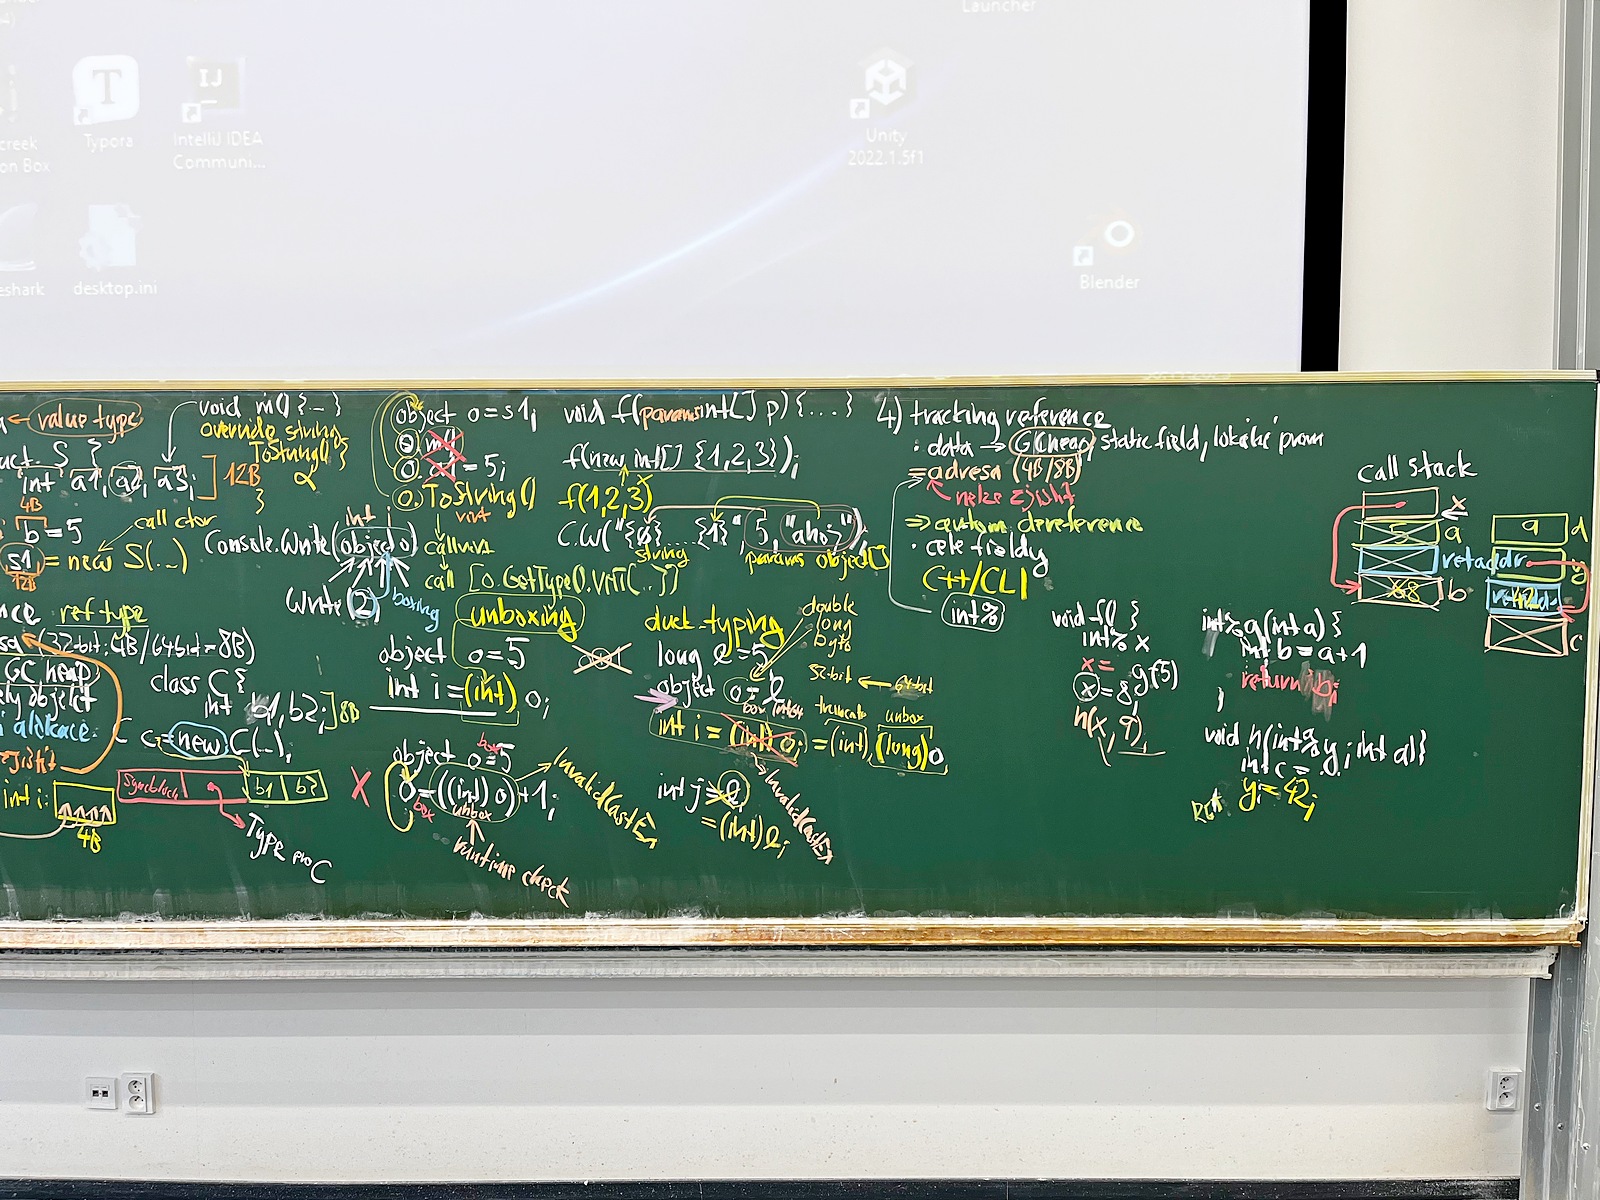 Launcher
Typora
IntelliJ IDEA
Communi...
Unity
2022.1.5f1
creek
on Box
eshark
desktop.ini
Blender
value type
void m() {...}
override string
ToString()
int a1, a2, a3;
12B
4B
b = 5
call ctor
s1 = new S(...)
12B
ref type
(32-bit=4B/64bit=8B)
GC heap
class C {
int b1, b2;
8B
C c = new C(...);
int i:
4B
Syncblock
b1 b2
Type pro C
int i
Console.Write(object o)
Write(2)
boxing
object o = s1;
o = 5;
o.ToString()
virt
callvirt
call [o.GetType().VMT(...)]
unboxing
object o = 5
int i = (int) o;
box
object o = 5
o = ((int) o) + 1;
box
unbox
runtime check
InvalidCastEx
X
void f(params int[] p) {...}
f(new int[] {1,2,3});
f(1,2,3)
C.W("{0} ... {1}", 5, "ahoj");
string
params object[]
duck typing
double
long
byte
long l = 5
object o = l
box
32-bit ← 64-bit
truncate
unbox
int i = (int) o; = (int)(long)o
InvalidCastEx
int j = l
= (int) l;
4) tracking reference
• data → GC heap, static field, lokální prom
= adresa (4B/8B)
nelze zjistit
⇒ autom. dereference
• cele fieldy
C++/CLI
int%
void f() {
int% x
x = g(5)
x = 8
h(x, 9)
int% g(int a) {
int b = a+1
return b;
}
void h(int% y, int a) {
int c = ...
y = 42;
call stack
x
a
retaddr
b
a
d
y
retaddr
c